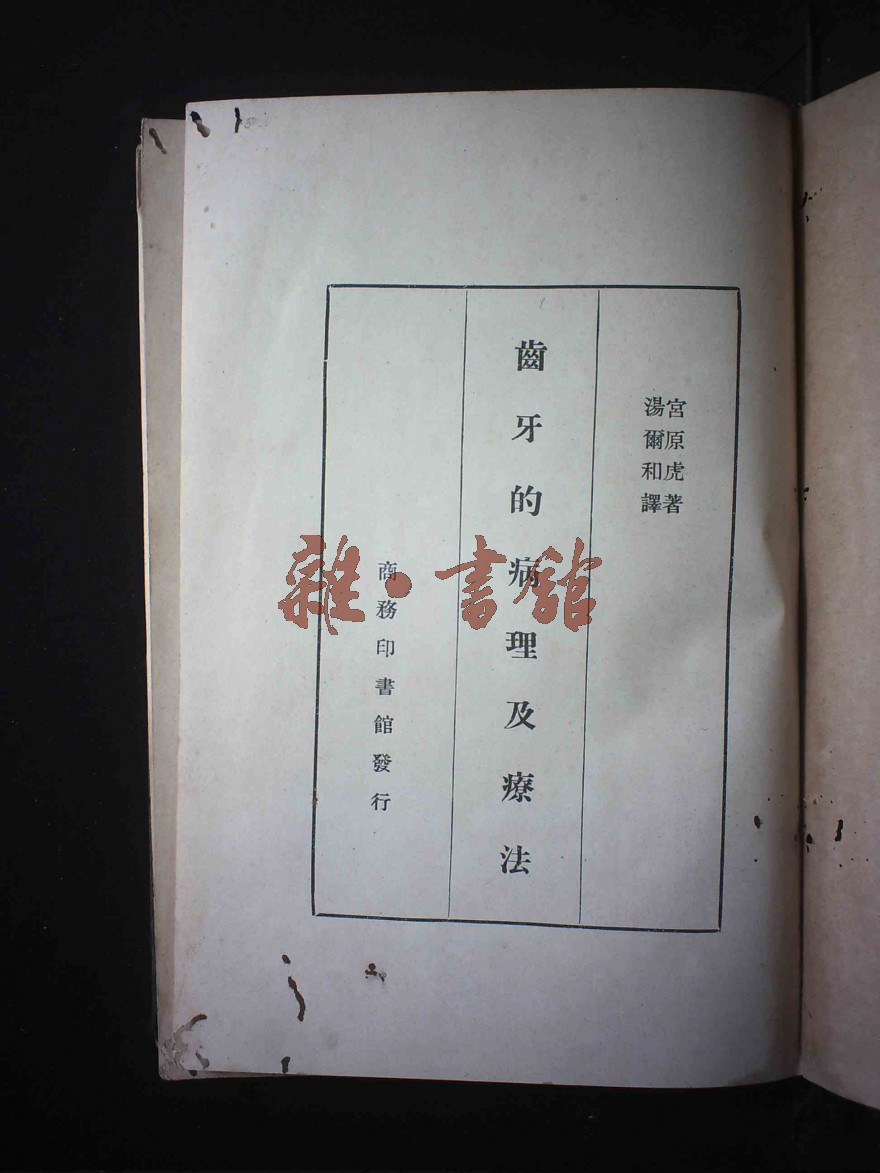 宮原虎著
湯爾和譯
齒牙的病理及療法
商務印書館發行
雜·書館